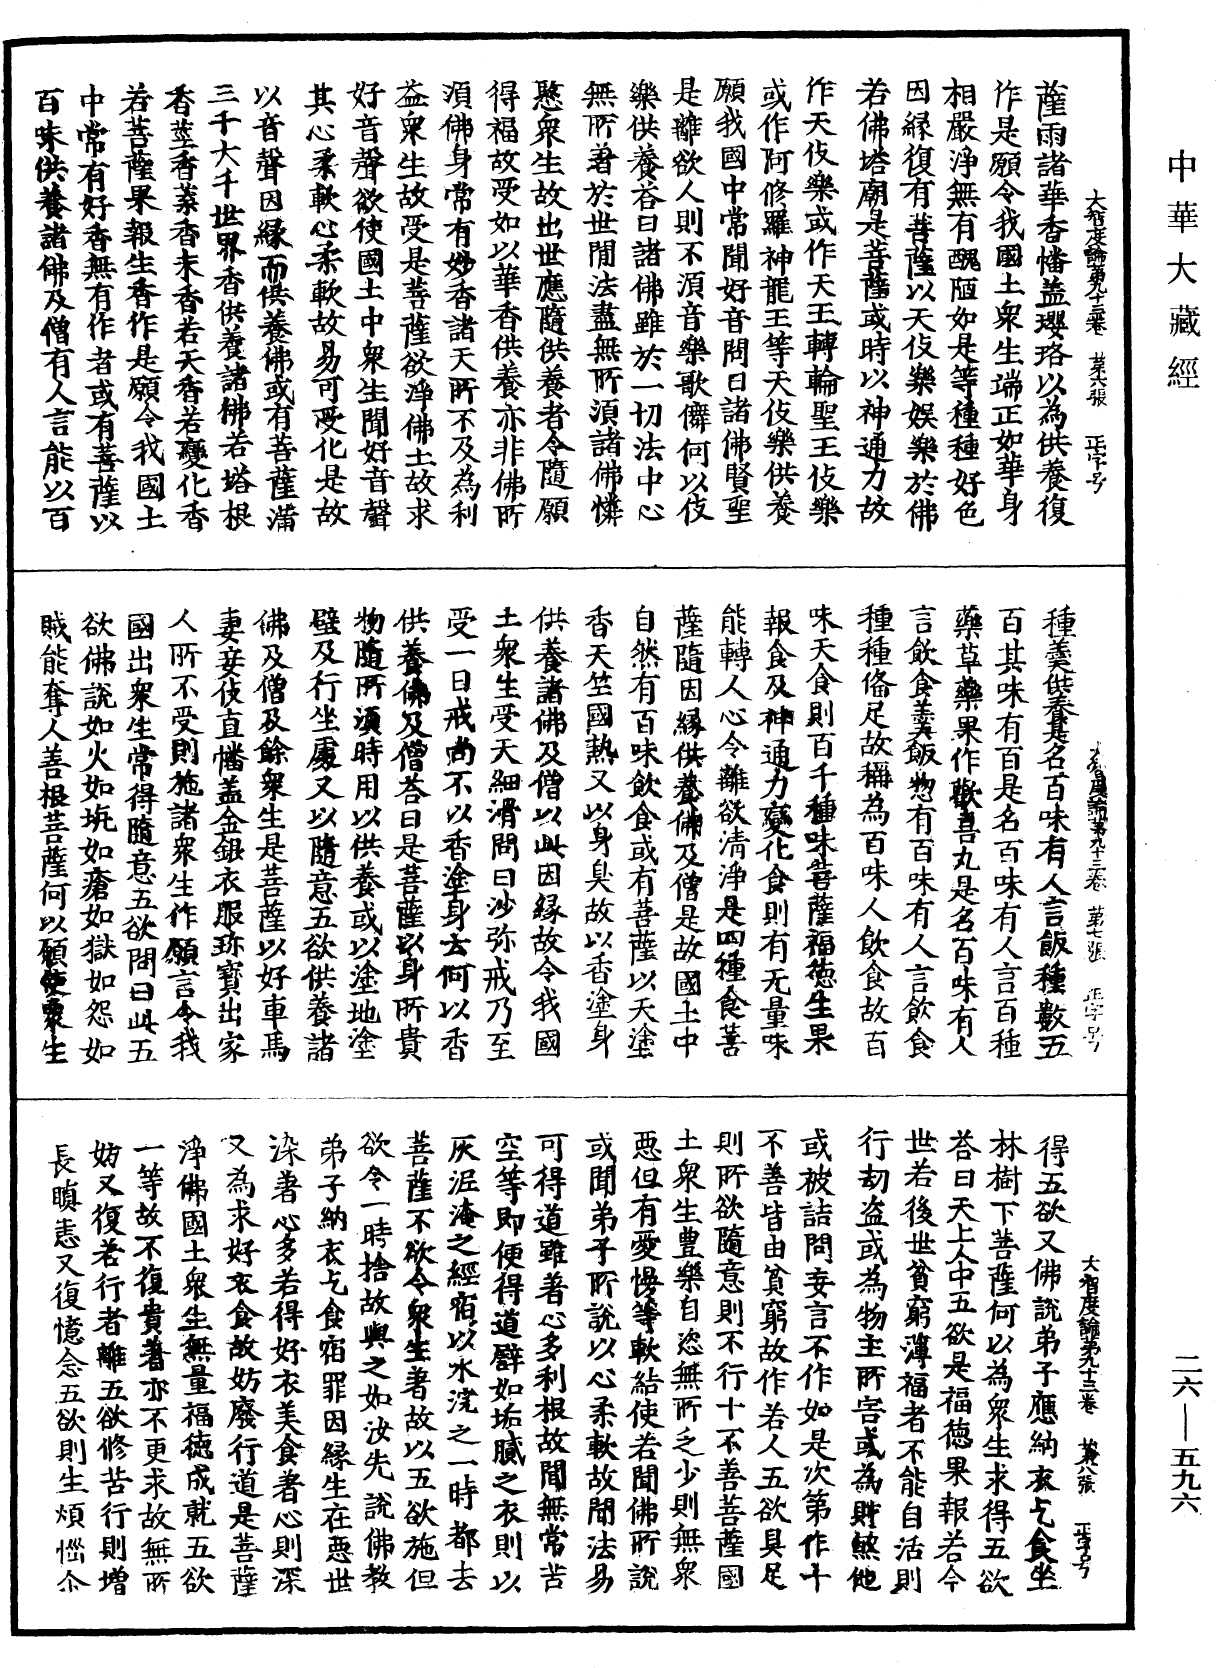 中華大藏經
大智度論第九十三卷 第六張 正字号
薩雨諸華香幡蓋瓔珞以為供養復
作是願令我國土衆生端正如華身
相嚴淨無有醜陋如是等種種好色
因緣復有菩薩以天伎樂娛樂於佛
若佛塔廟是菩薩或時以神通力故
作天伎樂或作天王轉輪聖王伎樂
或作阿修羅神龍王等天伎樂供養
願我國中常聞好音問曰諸佛賢聖
是離欲人則不須音樂歌儛何以伎
樂供養荅曰諸佛雖於一切法中心
無所著於世間法盡無所須諸佛憐
愍衆生故出世應隨供養者令隨願
得福故受如以華香供養亦非佛所
須佛身常有妙香諸天所不及為利
益衆生故受是菩薩欲淨佛土故求
好音聲欲使國土中衆生聞好音聲
其心柔軟心柔軟故易可受化是故
以音聲因緣而供養佛或有菩薩滿
三千大千世界香供養諸佛若塔根
香莖香葉香末香若天香若變化香
若菩薩果報生香作是願令我國土
中常有好香無有作者或有菩薩以
百味供養諸佛及僧有人言能以百
大智度論第九十三卷 第七張 正字号
種羹供養是名百味有人言飯種數五
百其味有百是名百味有人言百種
藥草藥果作歡喜丸是名百味有人
言飲食羹飯惣有百味有人言飲食
種種俻足故稱為百味人飲食故百
味天食則百千種味菩薩福德生果
報食及神通力變化食則有无量味
能轉人心令離欲清淨是四種食菩
薩隨因緣供養佛及僧是故國土中
自然有百味飲食或有菩薩以天塗
香天竺國熱又以身臭故以香塗身
供養諸佛及僧以此因緣故令我國
土衆生受天細滑問曰沙弥戒乃至
受一日戒尚不以香塗身云何以香
供養佛及僧荅曰是菩薩以身所貴
物隨所須時用以供養或以塗地塗
壁及行坐處又以隨意五欲供養諸
佛及僧及餘衆生是菩薩以好車馬
妻妾伎直幡盖金銀衣服珎寶出家
人所不受則施諸衆生作願言令我
國出衆生常得隨意五欲問曰此五
欲佛說如火如坑如瘡如獄如怨如
賊能奪人善根菩薩何以願使衆生
大智度論第九十三卷 第八張 正字号
得五欲又佛說弟子應納衣乞食坐
林樹下菩薩何以為衆生求得五欲
荅曰天上人中五欲是福德果報若今
世若後世貧窮薄福者不能自活則
行劫盗或為物主所害或為財煞他
或被詰問妄言不作如是次第作十
不善皆由貧窮故作若人五欲具足
則所欲隨意則不行十不善菩薩國
土衆生豊樂自恣無所乏少則無衆
惡但有愛慢等軟結使若聞佛所說
或聞弟子所說以心柔軟故聞法易
可得道雖著心多利根故聞無常苦
空等即便得道譬如垢膩之衣則以
灰泥淹之經宿以水浣之一時都去
菩薩不欲令衆生著故以五欲施但
欲令一時捨故與之如汝先說佛教
弟子納衣乞食宿罪因緣生在惡世
染著心多若得好衣美食著心則深
又為求好衣食故妨廢行道是菩薩
淨佛國土衆生無量福德成就五欲
一等故不復貴著亦不更求故無所
妨又復若行者離五欲修苦行則增
長瞋恚又復憶念五欲則生煩惱尒
二六—五九六